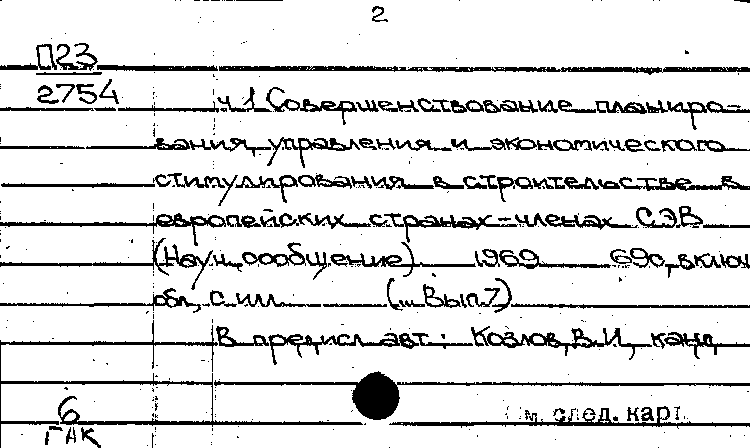 2
П23
2754
ч.1 Совершенствование планиро-
вания, управления и экономического
стимулирования в строительстве в
европейских странах-членах СЭВ
(Науч. сообщение). 1969. 69с, включ.
обл, с илл. (... Вып.7)
В предисл. авт.: Козлов, В.И, канд.
См. след. карт.
6
ГАК